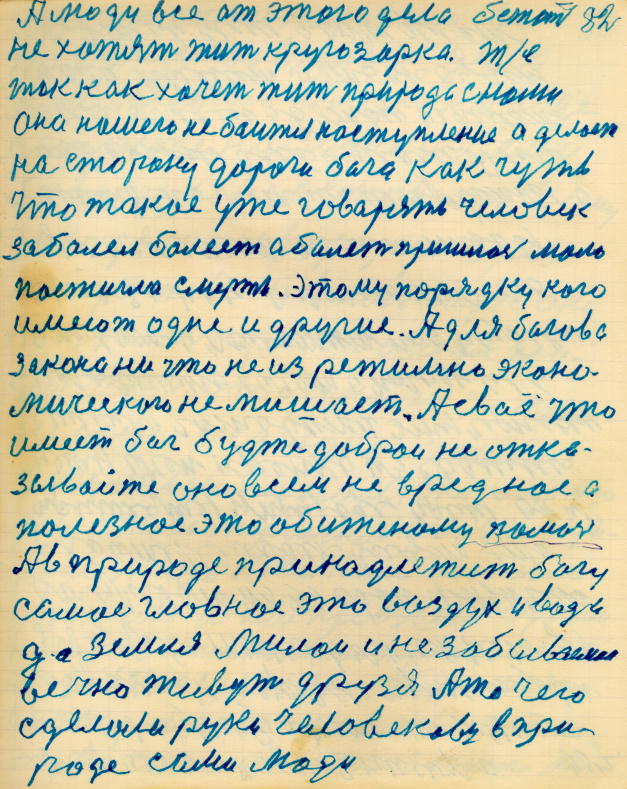 А люди все от этого дела бежат 82
не хотят жит кругозорка. т/е
так как хочет жит природа с нами
она нашего не боится наступление а делает
на сторону дороги бога как чуть
Что такое уже говарять человек
заболел болеет а болет пришлос мало
постигла смерть. Этому порядку кого
имеют одне и другие. А для богова
закона ни что не из решильно эконо-
мического не мишает. А сваё что
имеет бог будте доброи не отка-
зывайте оно всем не вредное а
полезное это обиженому помоч
А в природе принадлежит богу
самое гловное это воздух и вода
да земля милои и не забываемои
вечно живут друзя А то чего
сделали руки человекову в при-
роде сами люди